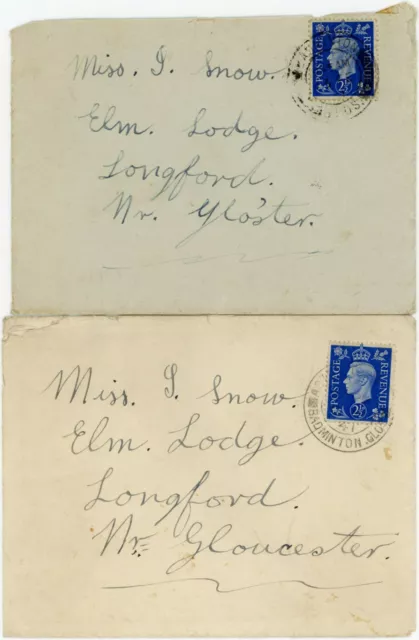 Miss. I. Snow.
Elm. Lodge.
Longford.
Nr. Glo'ster.
POSTAGE REVENUE
2½D
Miss. I. Snow.
Elm. Lodge.
Longford.
Nr= Gloucester.
POSTAGE REVENUE
2½D
BADMINTON. GLOS